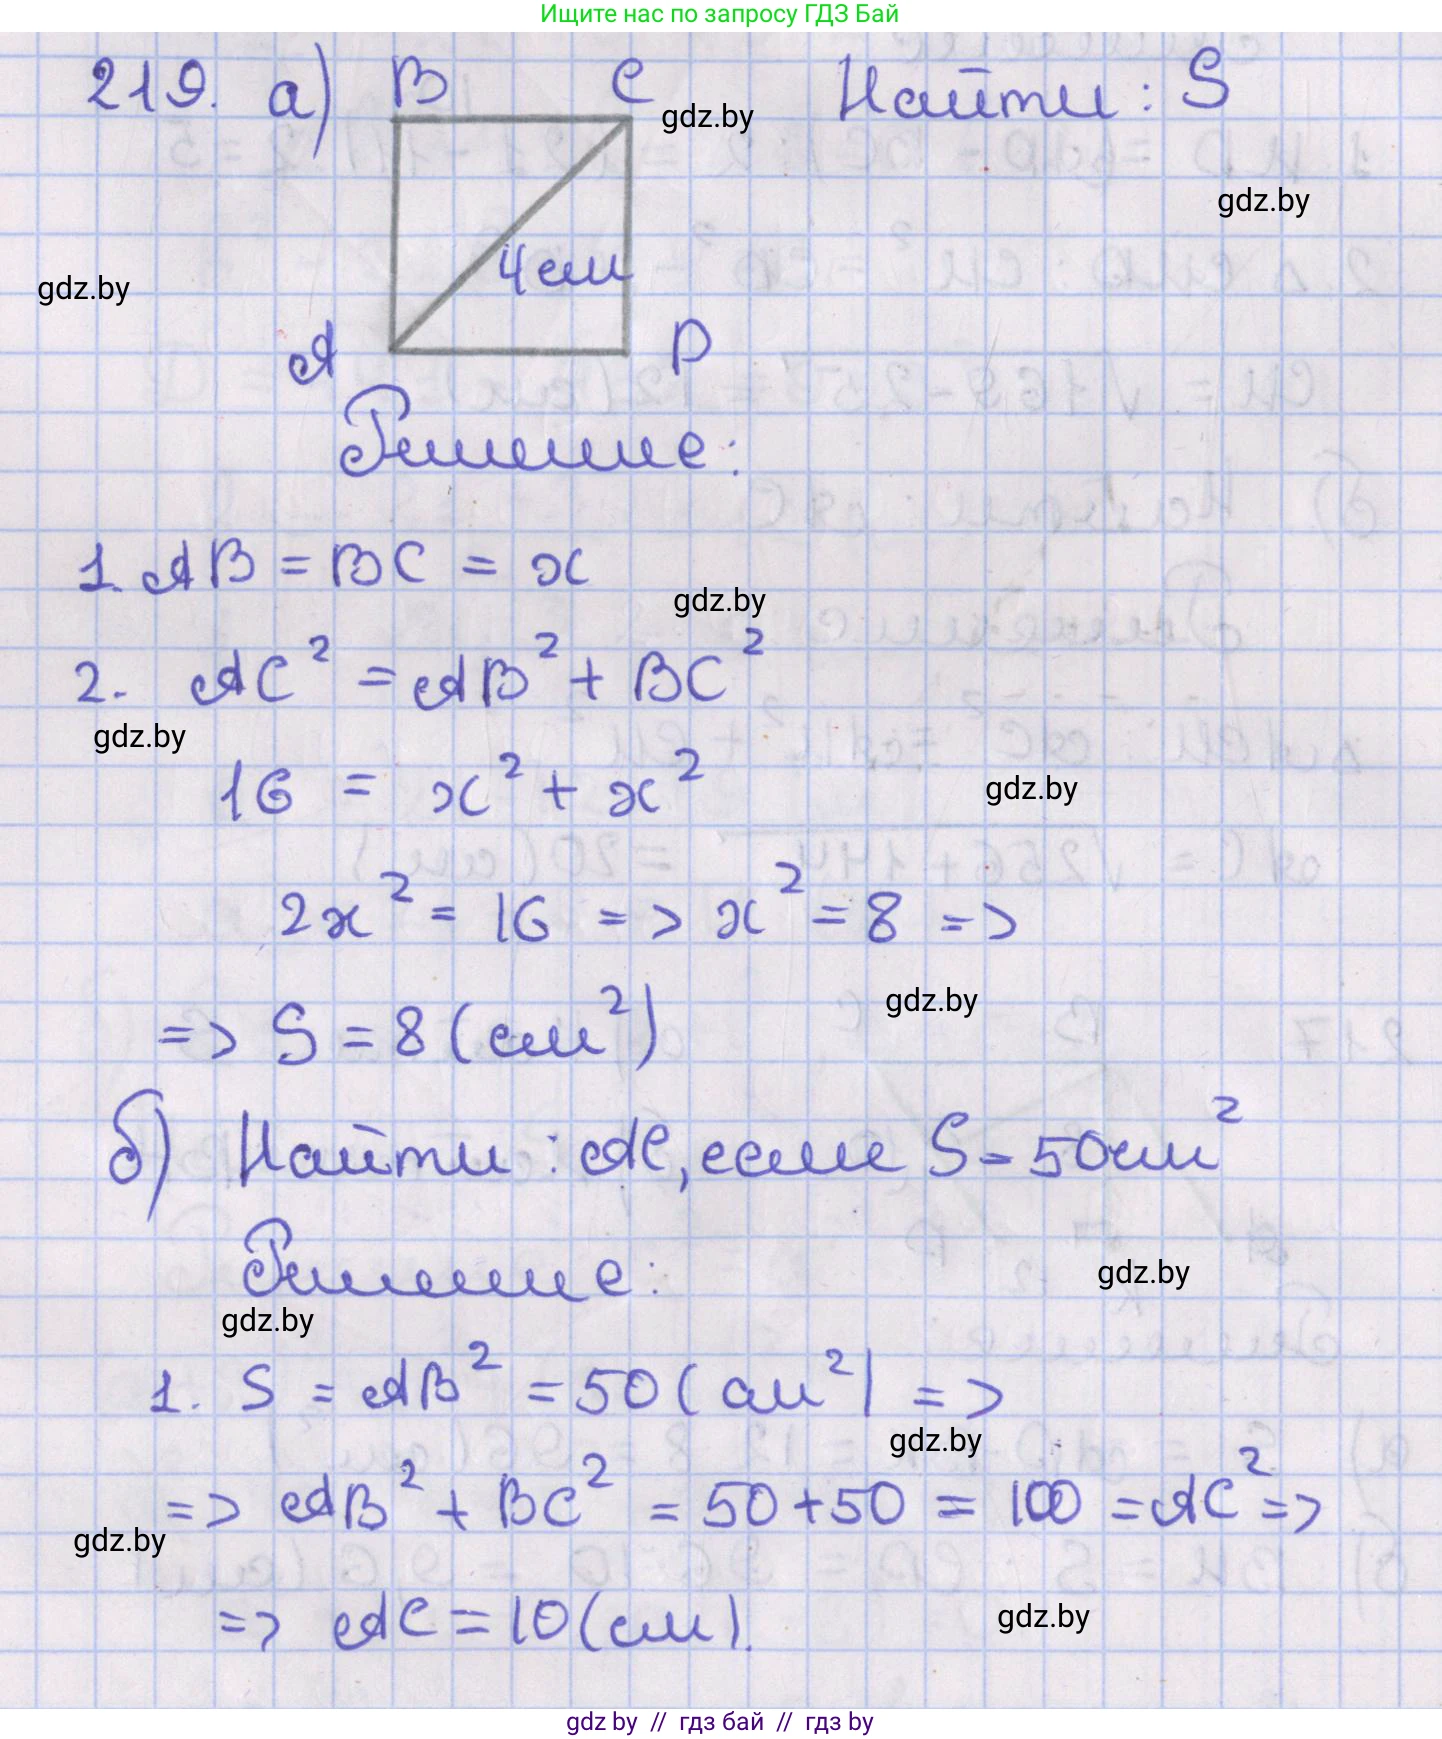 Ищите нас по запросу ГДЗ Бай
219. а) B C Найти: S
gdz.by
gdz.by
4 см
gdz.by
A D
Решение:
1. AB = BC = x
gdz.by
2. AC² = AB² + BC²
gdz.by
16 = x² + x²
gdz.by
2x² = 16 => x² = 8 =>
gdz.by
=> S = 8 (см²)
б) Найти: AC, если S = 50 см²
Решение:
gdz.by
gdz.by
1. S = AB² = 50 (см²) =>
gdz.by
=> AB² + BC² = 50 + 50 = 100 = AC² =>
gdz.by
=> AC = 10 (см).
gdz.by
gdz by // гдз бай // гдз by